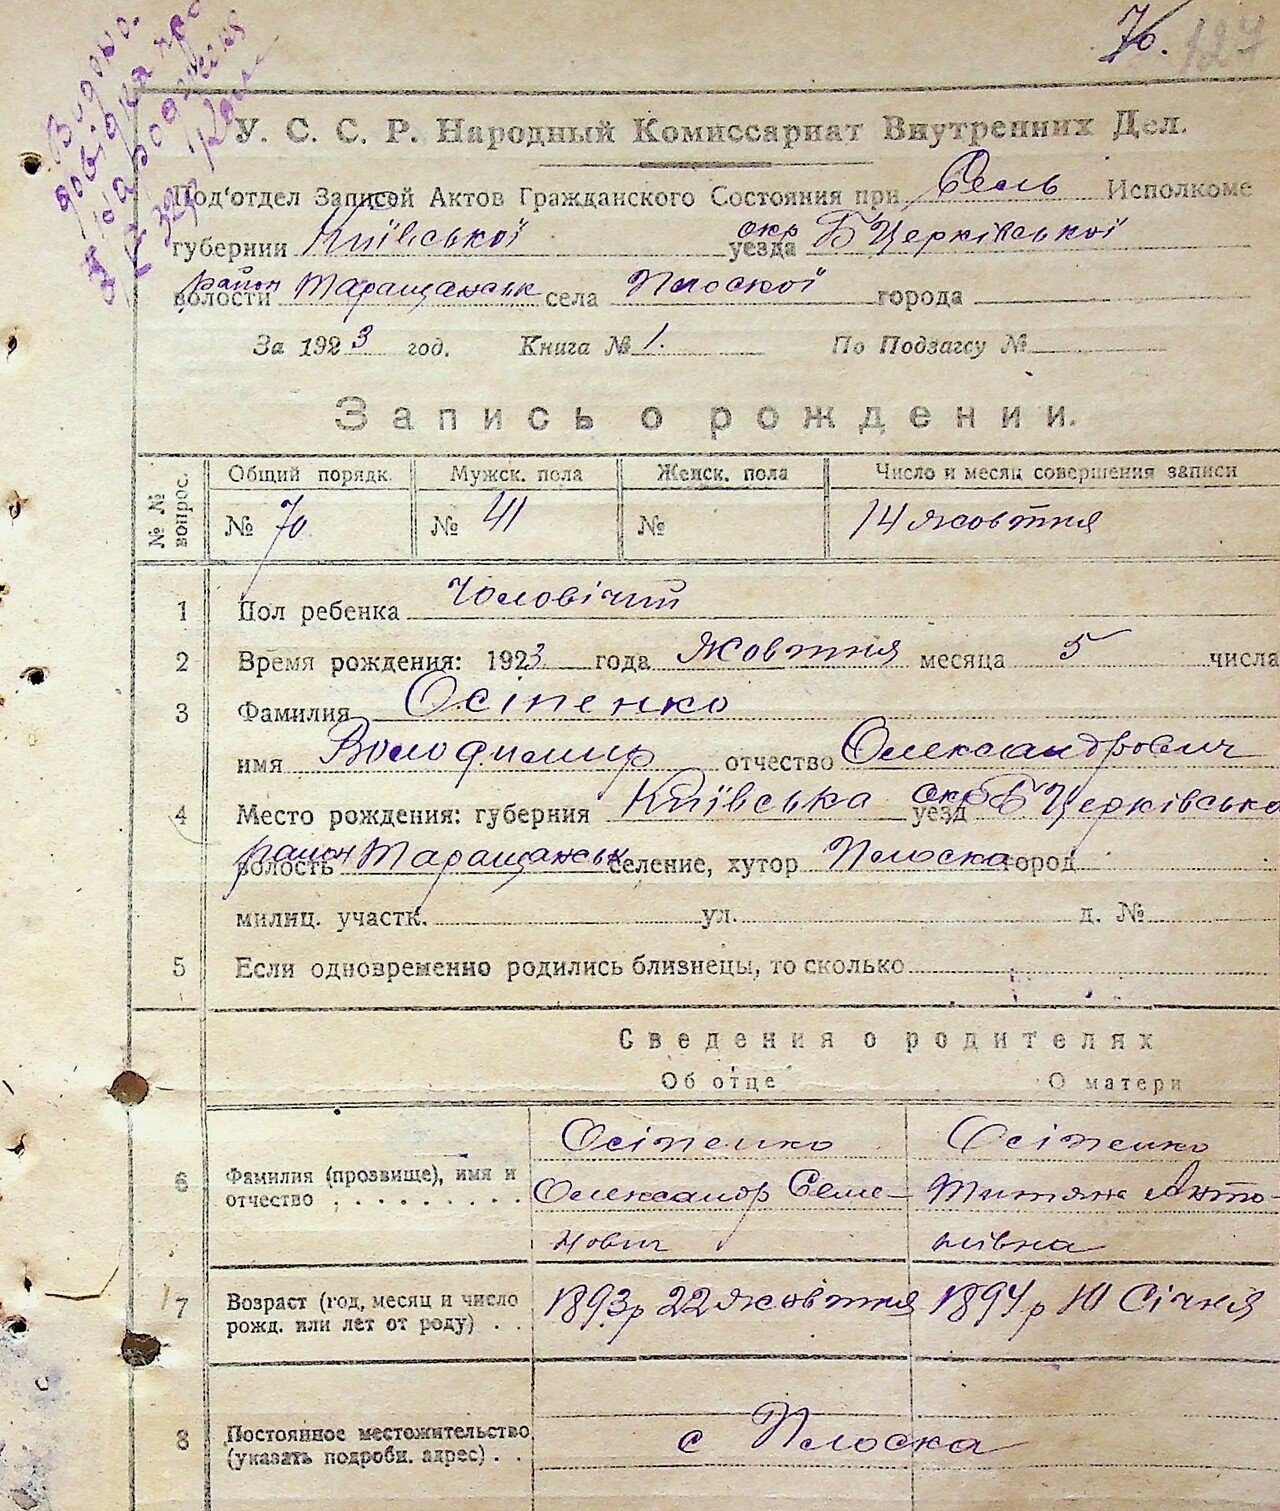 70. 127
Видано
довідка про
народження
У. С. С. Р. Народный Комиссариат Внутренних Дел.
Под'отдел Записей Актов Гражданского Состояния при Сель Исполкоме
губернии Київської окр уезда БЦерківської
район волости Таращанськ села Плоскої города
За 1923 год. Книга № 1. По Подзагсу №
Запись о рождении.
№ № вопрос. Общий порядк. Мужск. пола Женск. пола Число и месяц совершения записи
№ 70 № 41 № 14 жовтня
1 Пол ребенка Чоловічий
2 Время рождения: 1923 года Жовтня месяца 5 числа
3 Фамилия Осіпенко
имя Володимир отчество Олександрович
4 Место рождения: губерния Київська окр уезд БЦерківська
район волость Таращанськ селение, хутор Плоска город
милиц. участк. ул. д. №
5 Если одновременно родились близнецы, то сколько
Сведения о родителях
Об отце О матери
Осіпенко Осіпенко
6 Фамилия (прозвище), имя и
отчество . . . . . . . . . Олександр Семе- Титяна Анто-
нович нівна
7 Возраст (год, месяц и число
рожд. или лет от роду) . . 1893р 22 жовтня 1894р Січня
8 Постоянное местожительство
(указать подробн. адрес) . . с Плоска